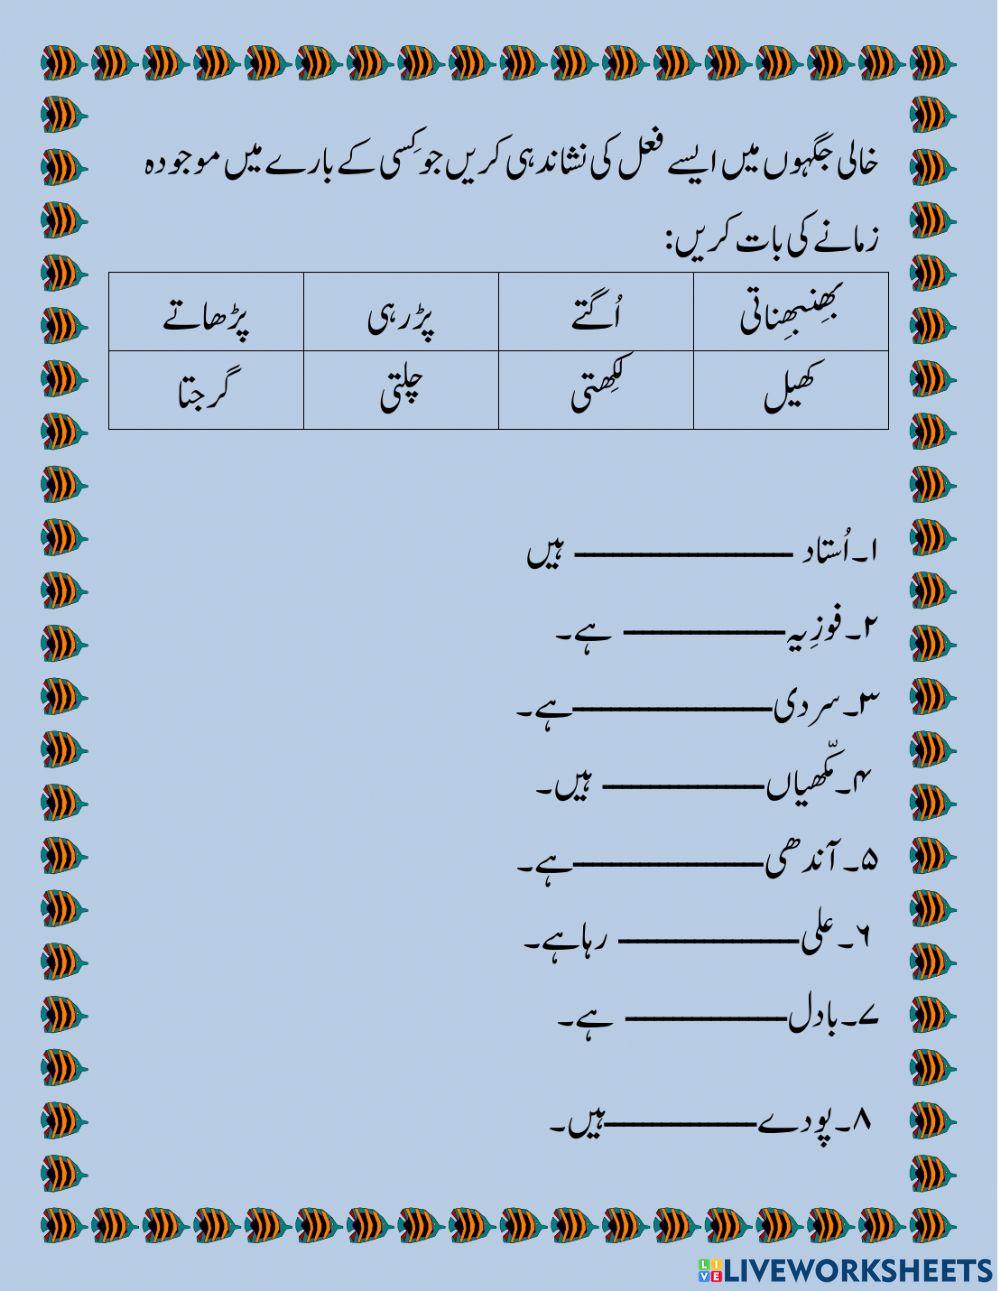 خالی جگہوں میں ایسے فعل کی نشاندہی کریں جو کِسی کے بارے میں موجودہ
زمانے کی بات کریں:
بھِنبھِناتی اُگتے پڑرہی پڑھاتے
کھیل لِکھتی چلتی گرجتا
۱۔اُستاد ــــــــــــــــــــ ہیں
۲۔فوزِیہــــــــــــــــ ہے۔
۳۔سردیــــــــــــــــــہے۔
۴۔مکّھیاںــــــــــــــــ ہیں۔
۵۔آندھیــــــــــــــــــہے۔
۶۔علیــــــــــــــــــ رہاہے۔
۷۔بادلــــــــــــــــ ہے۔
۸۔پودےــــــــــــــہیں۔
LIVEWORKSHEETS